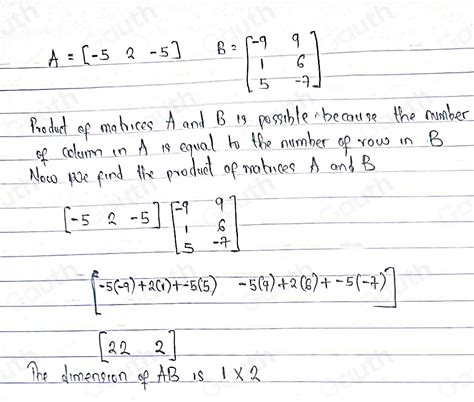 A = [-5 2 -5] B = [-9 9
1 6
5 -7]
Product of matrices A and B is possible because the number
of column in A is equal to the number of rows in B
Now we find the product of matrices A and B
[-5 2 -5] [-9 9
1 6
5 -7]
[-5(-9)+2(1)+-5(5) -5(9)+2(6)+-5(-7)]
[22 2]
The dimension of AB is 1 X 2